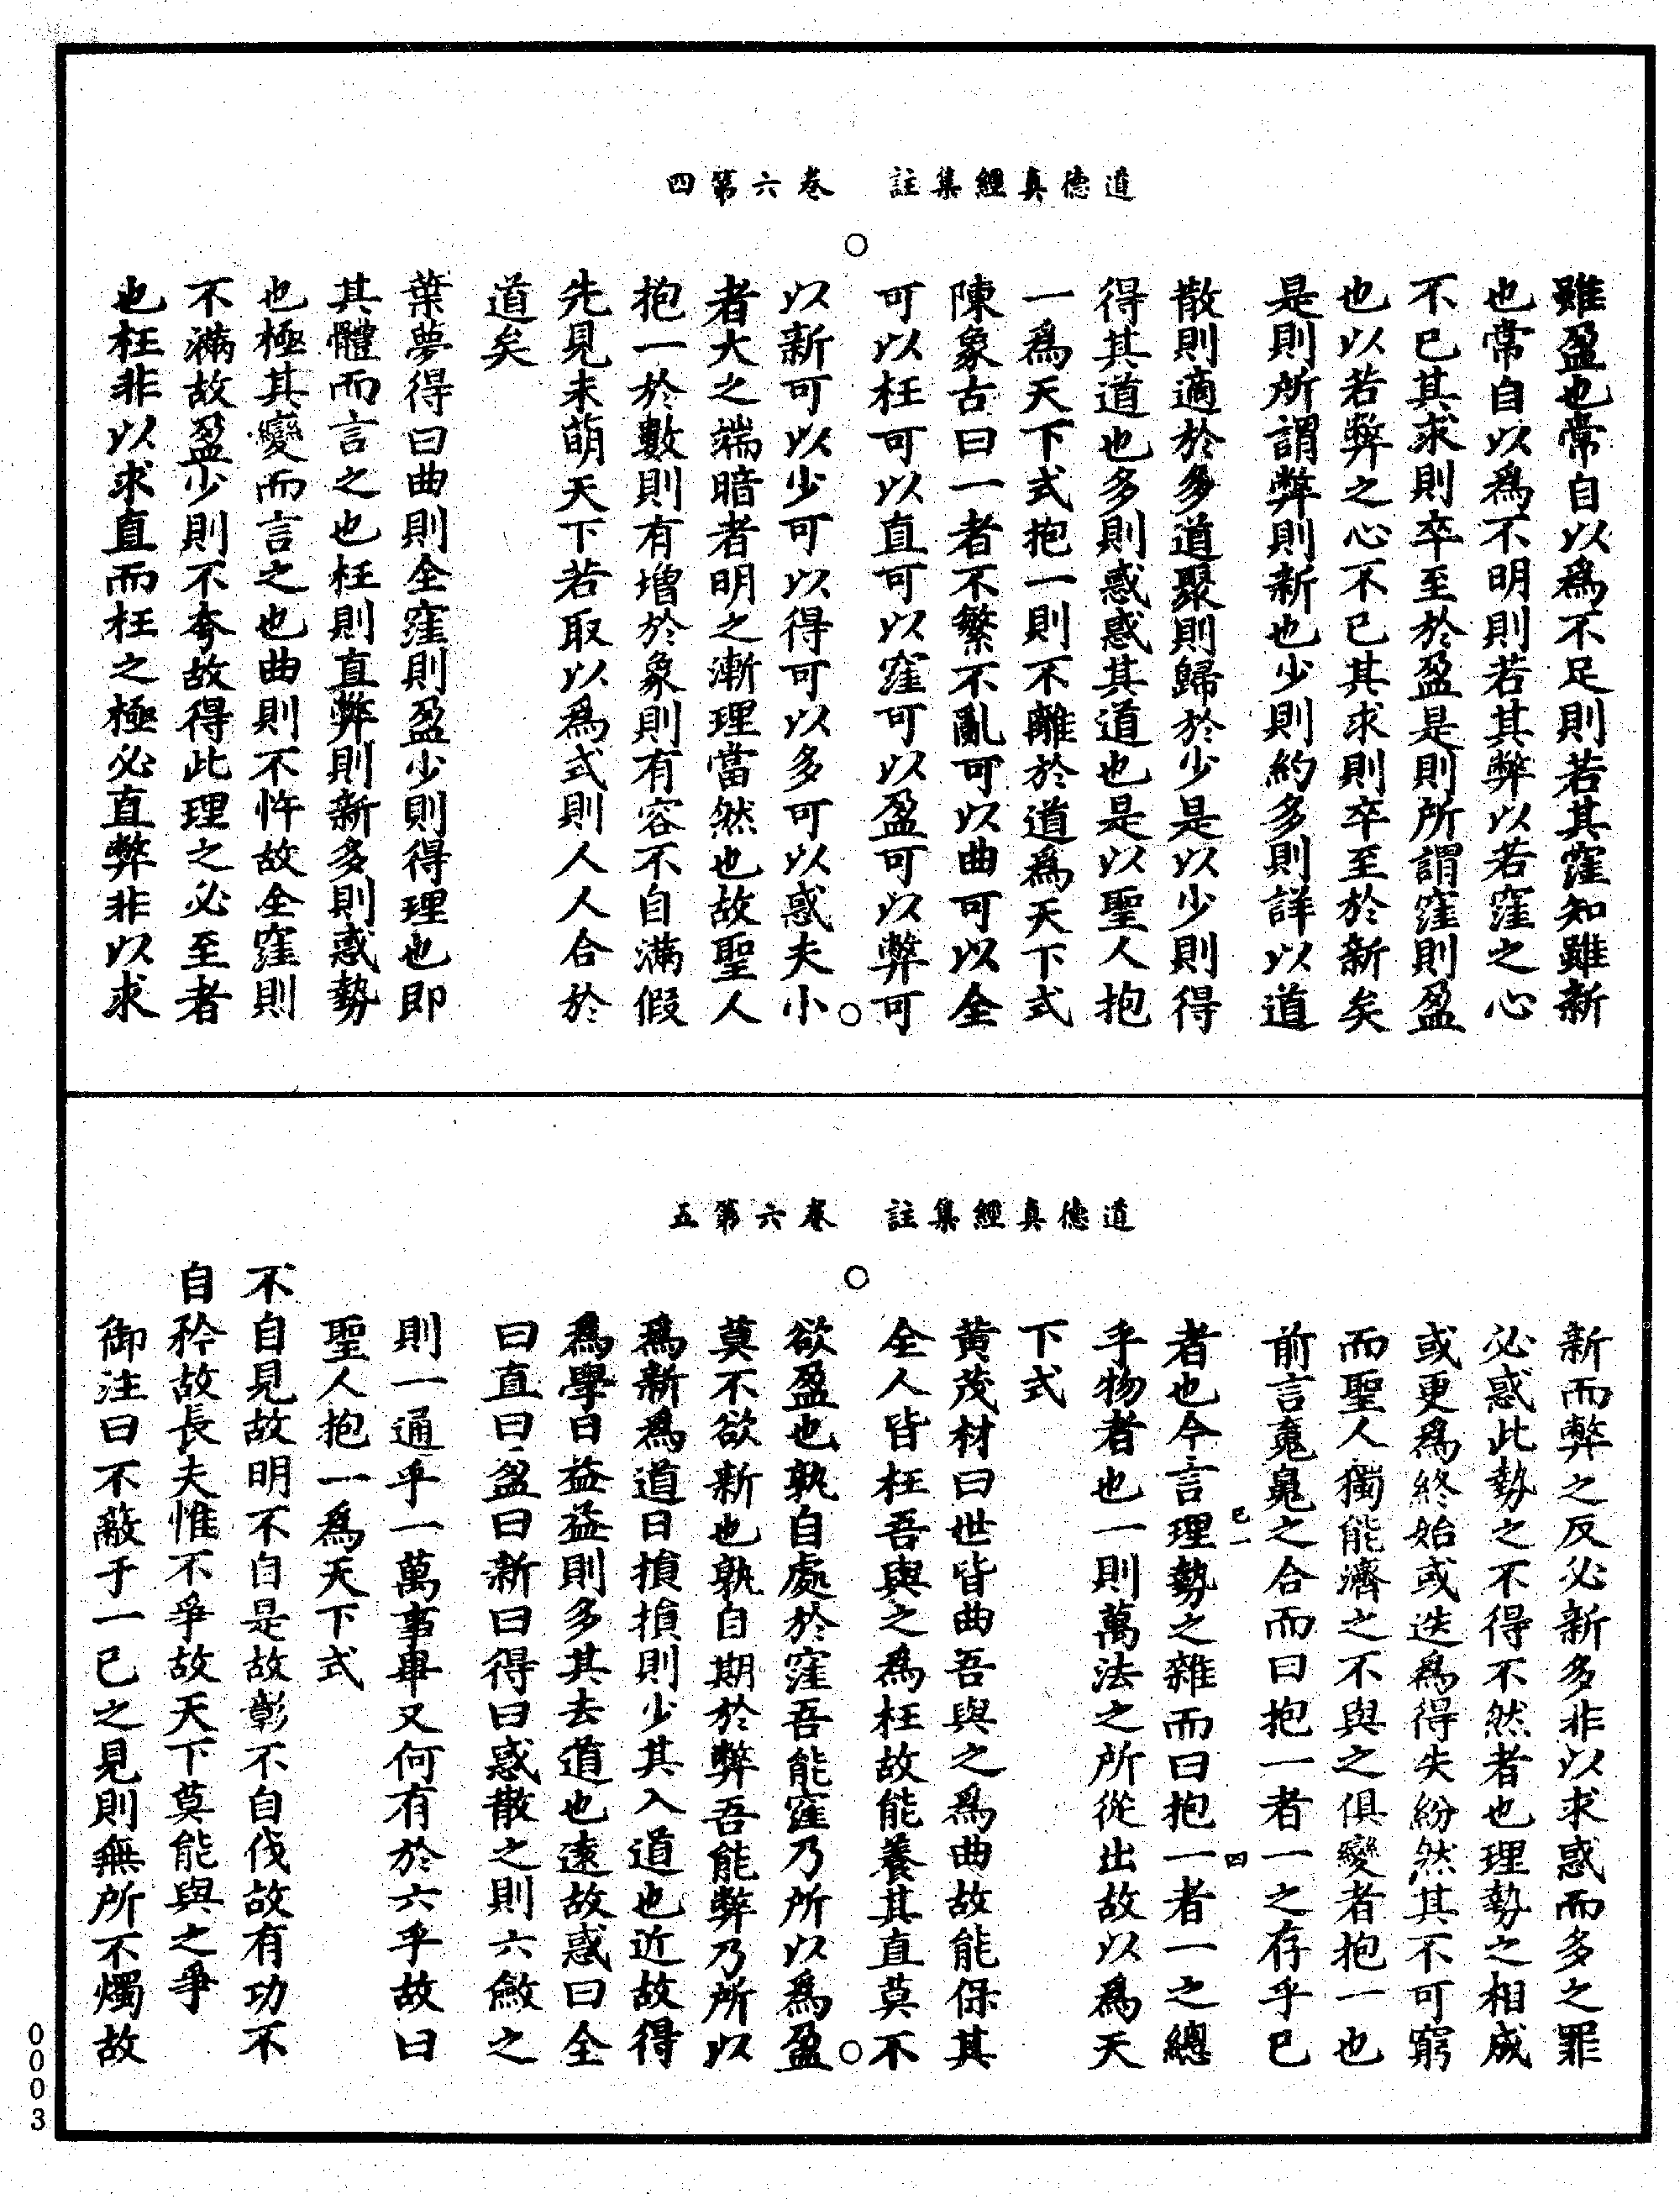 道德真經集註　卷六第四
雖盈也常自以為不足則若其窪知雖新
也常自以為不明則若其弊以若窪之心
不已其求則卒至於盈是則所謂窪則盈
也以若弊之心不已其求則卒至於新矣
是則所謂弊則新也少則約多則詳以道
散則適於多道聚則歸於少是以少則得
得其道也多則惑惑其道也是以聖人抱
一為天下式抱一則不離於道為天下式
陳象古曰一者不繁不亂可以曲可以全
可以枉可以直可以窪可以盈可以弊可
以新可以少可以得可以多可以惑夫小
者大之端暗者明之漸理當然也故聖人
抱一於數則有增於象則有容不自滿假
先見未萌天下若取以為式則人人合於
道矣
葉夢得曰曲則全窪則盈少則得理也即
其體而言之也枉則直弊則新多則惑勢
也極其變而言之也曲則不忤故全窪則
不滿故盈少則不夸故得此理之必至者
也枉非以求直而枉之極必直弊非以求
道德真經集註　卷六第五
新而弊之反必新多非以求惑而多之罪
必惑此勢之不得不然者也理勢之相成
或更為終始或迭為得失紛然其不可窮
而聖人獨能濟之不與之俱變者抱一也
前言䰟魄之合而曰抱一者一之存乎已
者也今言理勢之雜而曰抱一者一之總
乎物者也一則萬法之所從出故以為天
下式
黃茂材曰世皆曲吾與之為曲故能保其
全人皆枉吾與之為枉故能養其直莫不
欲盈也孰自處於窪吾能窪乃所以為盈
莫不欲新也孰自期於弊吾能弊乃所以
為新為道日損損則少其入道也近故得
為學日益益則多其去道也遠故惑曰全
曰直曰盈曰新曰得曰惑散之則六斂之
則一通乎一萬事畢又何有於六乎故曰
聖人抱一為天下式
不自見故明不自是故彰不自伐故有功不
自矜故長夫惟不爭故天下莫能與之爭
御注曰不蔽于一己之見則無所不燭故
已一
四
0003